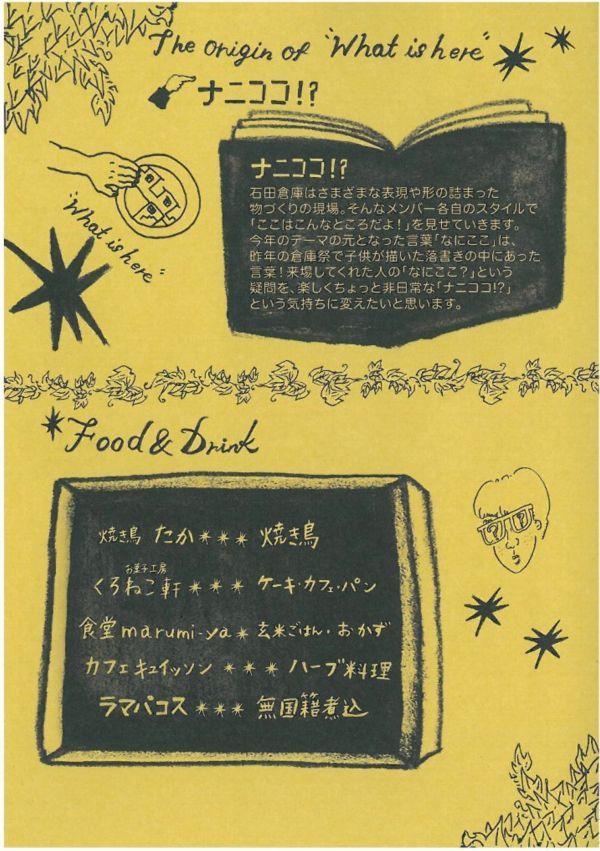 The origin of "What is here"
ナニココ!?
"What is here"
ナニココ!?
石田倉庫はさまざまな表現や形の詰まった
物づくりの現場。そんなメンバー各自のスタイルで
「ここはこんなところだよ!」を見せていきます。
今年のテーマの元となった言葉「なにここ」は、
昨年の倉庫祭で子供が描いた落書きの中にあった
言葉!来場してくれた人の「なにここ?」という
疑問を、楽しくちょっと非日常な「ナニココ!?」
という気持ちに変えたいと思います。
Food & Drink
焼き鳥 たか*** 焼き鳥
お菓子工房
くろねこ軒*** ケーキ・カフェ・パン
食堂marumi-ya* 玄米ごはん・おかず
カフェキュイッソン *** ハーブ料理
ラマパコス *** 無国籍煮込